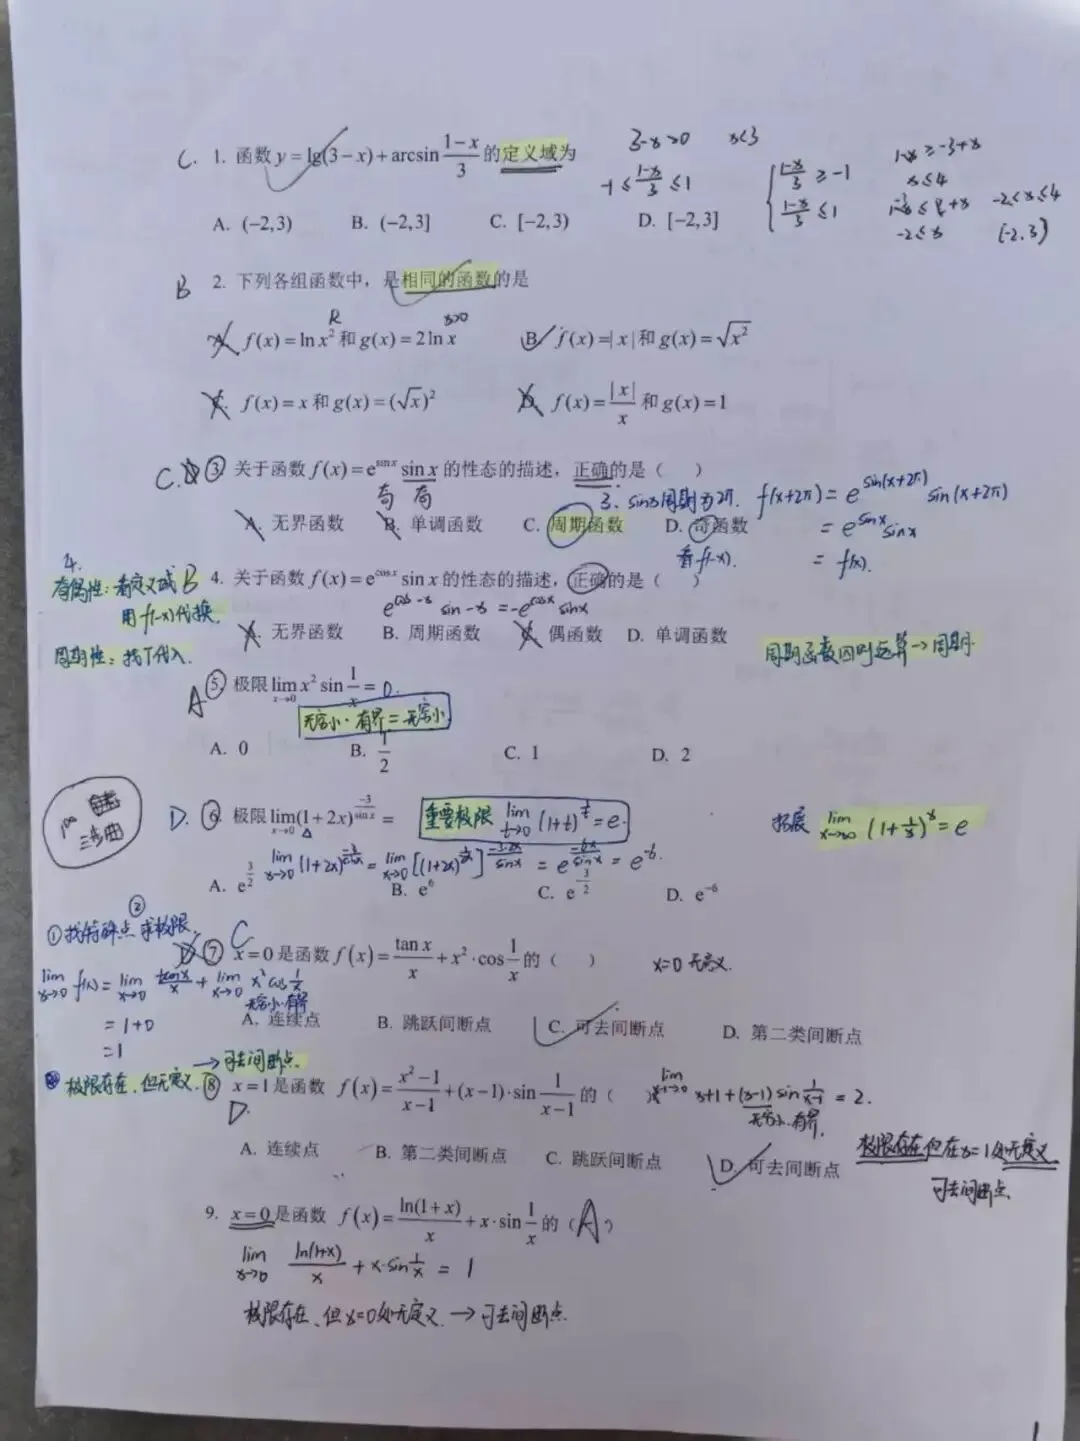 C. 1. 函数 y = lg(3-x) + arcsin (1-x)/3 的定义域为
3-x>0 x<3
-1 ≤ (1-x)/3 ≤ 1
(1-x)/3 ≥ -1
1-x ≥ -3+x
x≤4
(1-x)/3 ≤ 1
-2<x≤4
-2≤x
[-2,3)
A. (-2,3) B. (-2,3] C. [-2,3) D. [-2,3]
B 2. 下列各组函数中，是相同的函数的是
R x>0
A. f(x) = ln x² 和 g(x) = 2ln x B. f(x)=|x| 和 g(x) = √x²
C. f(x) = x 和 g(x) = (√x)² D. f(x) = |x|/x 和 g(x) = 1
C. ③ 关于函数 f(x) = e^{sin x} sin x 的性态的描述，正确的是（ ）
奇 奇
3. sinx周期为2π. f(x+2π) = e^{sin(x+2π)} sin(x+2π)
= e^{sinx} sinx
= f(x).
A. 无界函数 B. 单调函数 C. 周期函数 D. 奇函数
看f(-x).
4.
奇偶性：看定义域
用 f(-x)代换.
周期性：找T代入.
B 4. 关于函数 f(x) = e^{cos x} sin x 的性态的描述，正确的是（ ）
e^{cos -x} sin -x = -e^{cosx} sinx
A. 无界函数 B. 周期函数 C. 偶函数 D. 单调函数
周期函数四则运算→周期.
A ⑤. 极限 lim_{x→0} x² sin 1/x = 0.
无穷小·有界=无穷小
A. 0 B. 1/2 C. 1 D. 2
D. ⑥. 极限 lim_{x→0} (1+2x)^{-3/sin x} =
重要极限 lim_{t→0} (1+t)^{1/t} = e.
拓展 lim_{x→∞} (1+1/x)^x = e
lim_{x→0} (1+2x)^{-3/sinx} = lim_{x→0} [(1+2x)^{1/2x}]^{-3·2x/sinx} = e^{-6x/sinx} = e^{-6}.
A. e^{3/2} B. e^6 C. e^{-3/2} D. e^{-6}
①找特殊点 ②求极限.
C ⑦ x=0 是函数 f(x) = tan x/x + x²·cos 1/x 的（ ）
x=0 无定义.
lim_{x→0} f(x) = lim_{x→0} tanx/x + lim_{x→0} x² cos 1/x
无穷小·有界
= 1+0
= 1
A. 连续点 B. 跳跃间断点 C. 可去间断点 D. 第二类间断点
极限存在，但无定义. → 可去间断点.
⑧ x=1 是函数 f(x) = (x²-1)/(x-1) + (x-1)·sin 1/(x-1) 的（ ）
D.
lim x+1+(x-1) sin 1/(x-1) = 2.
无穷小·有界.
A. 连续点 B. 第二类间断点 C. 跳跃间断点 D. 可去间断点
极限存在但在x=1处无定义
可去间断点
9. x=0 是函数 f(x) = ln(1+x)/x + x·sin 1/x 的（A）
lim_{x→0} ln(1+x)/x + x·sin 1/x = 1
极限存在、但x=0处无定义. → 可去间断点.